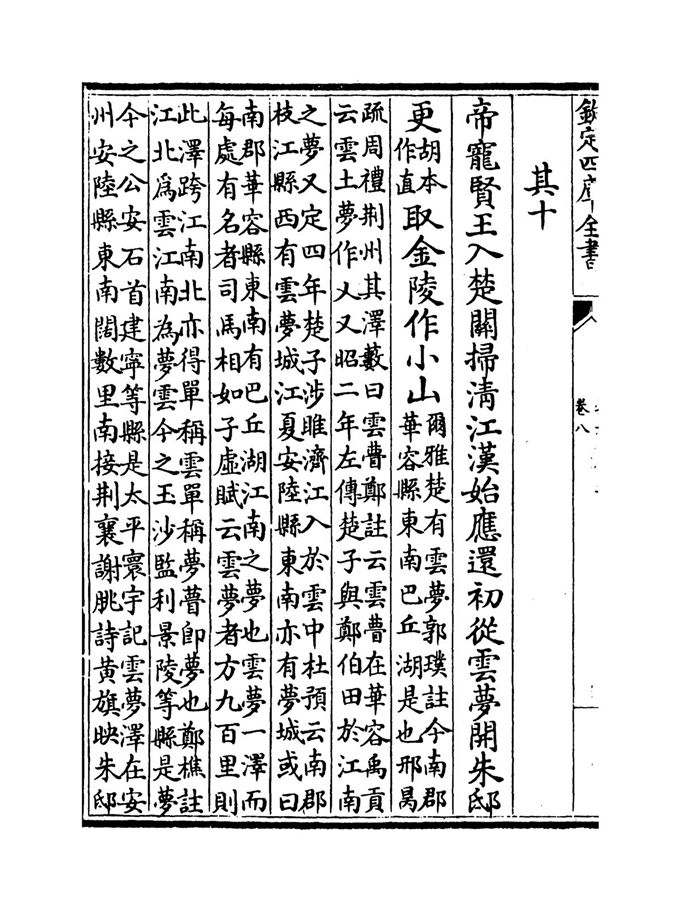 欽定四庫全書
卷八
其十
帝寵賢王入楚關掃淸江漢始應還初從雲夢開朱邸
更胡本作直取金陵作小山爾雅楚有雲夢郭璞註今南郡
華容縣東南巴丘湖是也邢昺
疏周禮荆州其澤藪曰雲瞢鄭註云雲瞢在華容禹貢
云雲土夢作乂又昭二年左傳楚子與鄭伯田於江南
之夢又定四年楚子涉睢濟江入於雲中杜預云南郡
枝江縣西有雲夢城江夏安陸縣東南亦有夢城或曰
南郡華容縣東南有巴丘湖江南之夢也雲夢一澤而
每處有名者司馬相如子虛賦云雲夢者方九百里則
此澤跨江南北亦得單稱雲單稱夢瞢即夢也鄭樵註
江北爲雲江南為夢雲今之玉沙監利景陵等縣是夢
今之公安石首建寧等縣是太平寰宇記雲夢澤在安
州安陸縣東南闊數里南接荆襄謝朓詩黄旗映朱邸